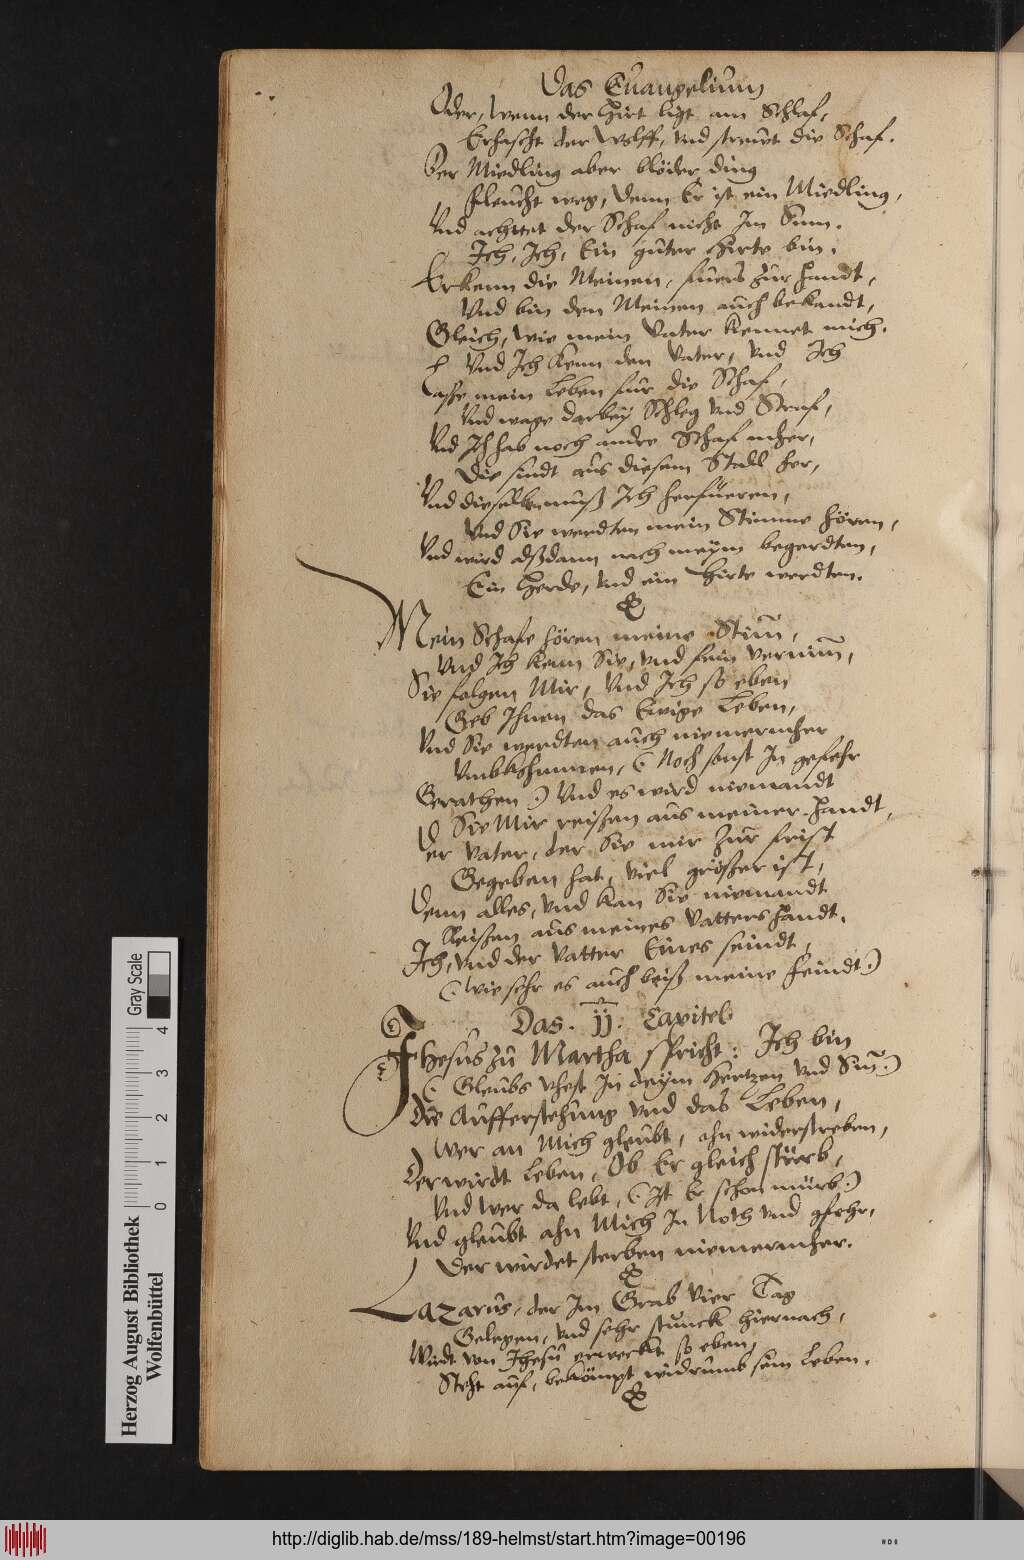 Das Euangelium
Oder, wenn der Hirt ligt am Schlaf,
Erhascht der Wolff, vnd strewt die Schaf.
Der Miedling aber blöder ding
fleucht weg, denn Er ist ein Miedling,
Vnd achttet der Schaf nicht Im Sinn.
Ich, Ich, Ein guter Hirte bin,
Erkenn die Meinen, fuers zur handt,
Vnd bin den Meinen auch bekandt,
Gleich, wie mein Vater kennet mich.
Vnd Ich kenn den Vater, vnd Ich
Lasse mein Leben für die Schaf,
Vnd wage darbey Schleg vnd Straf,
Vnd Ich hab noch andre Schaf mher,
Die sindt aus diesem Stall her,
Vnd dieselben muß Ich herfüeren,
Vnd Sie werdten mein Stimme hören,
Vnd wird alßdann nach meym begerdten,
Ein Herde, vnd ein Hirte werdten.
Mein Schafe hören meine Stim̄,
Vnd Ich kenn Sie, vnd sein vernim̄,
Sie folgen Mir, Vnd Ich so eben
Geb Ihnen das Ewige Leben,
Vnd Sie werdten auch niemermher
Vmbkhummen, (Noch sonst In gefehr
Gerathen) Vnd es wird niemandt
Sie Mir reißen aus meiner Handt,
Der Vater, der Sie mir zur frist
Gegeben hat, viel größer ist,
Denn alles, vnd kan Sie niemandt
Reißen aus meines Vatters Handt.
Ich, vnd der Vatter Eines seindt,
(Wie sehr es auch beiß meine Feindt.)
Das. 11. Capitel
Jhesus zu Martha spricht: Ich bin
(Gleubs vhest In deym Hertzen vnd Sin̄.)
Die Aufferstehung vnd das Leben,
Wer an Mich gleubt, ahn widerstreben,
Der wirdt leben, Ob Er gleich stürb,
Vnd wer da lebt, (Ist Er schon mürb.)
Vnd gleubt ahn Mich In Noth vnd gfehr,
Der wirdet sterben niemermher.
Lazarus, der Im Grab vier Tag
Gelegen, vnd sehr stunck hiernach,
Wirdt von Jhesu erweckt so eben,
Steht auf, bekömpt widrumb sein Leben.
Gray Scale
0 1 2 3 4
Herzog August Bibliothek
Wolfenbüttel
http://diglib.hab.de/mss/189-helmst/start.htm?image=00196